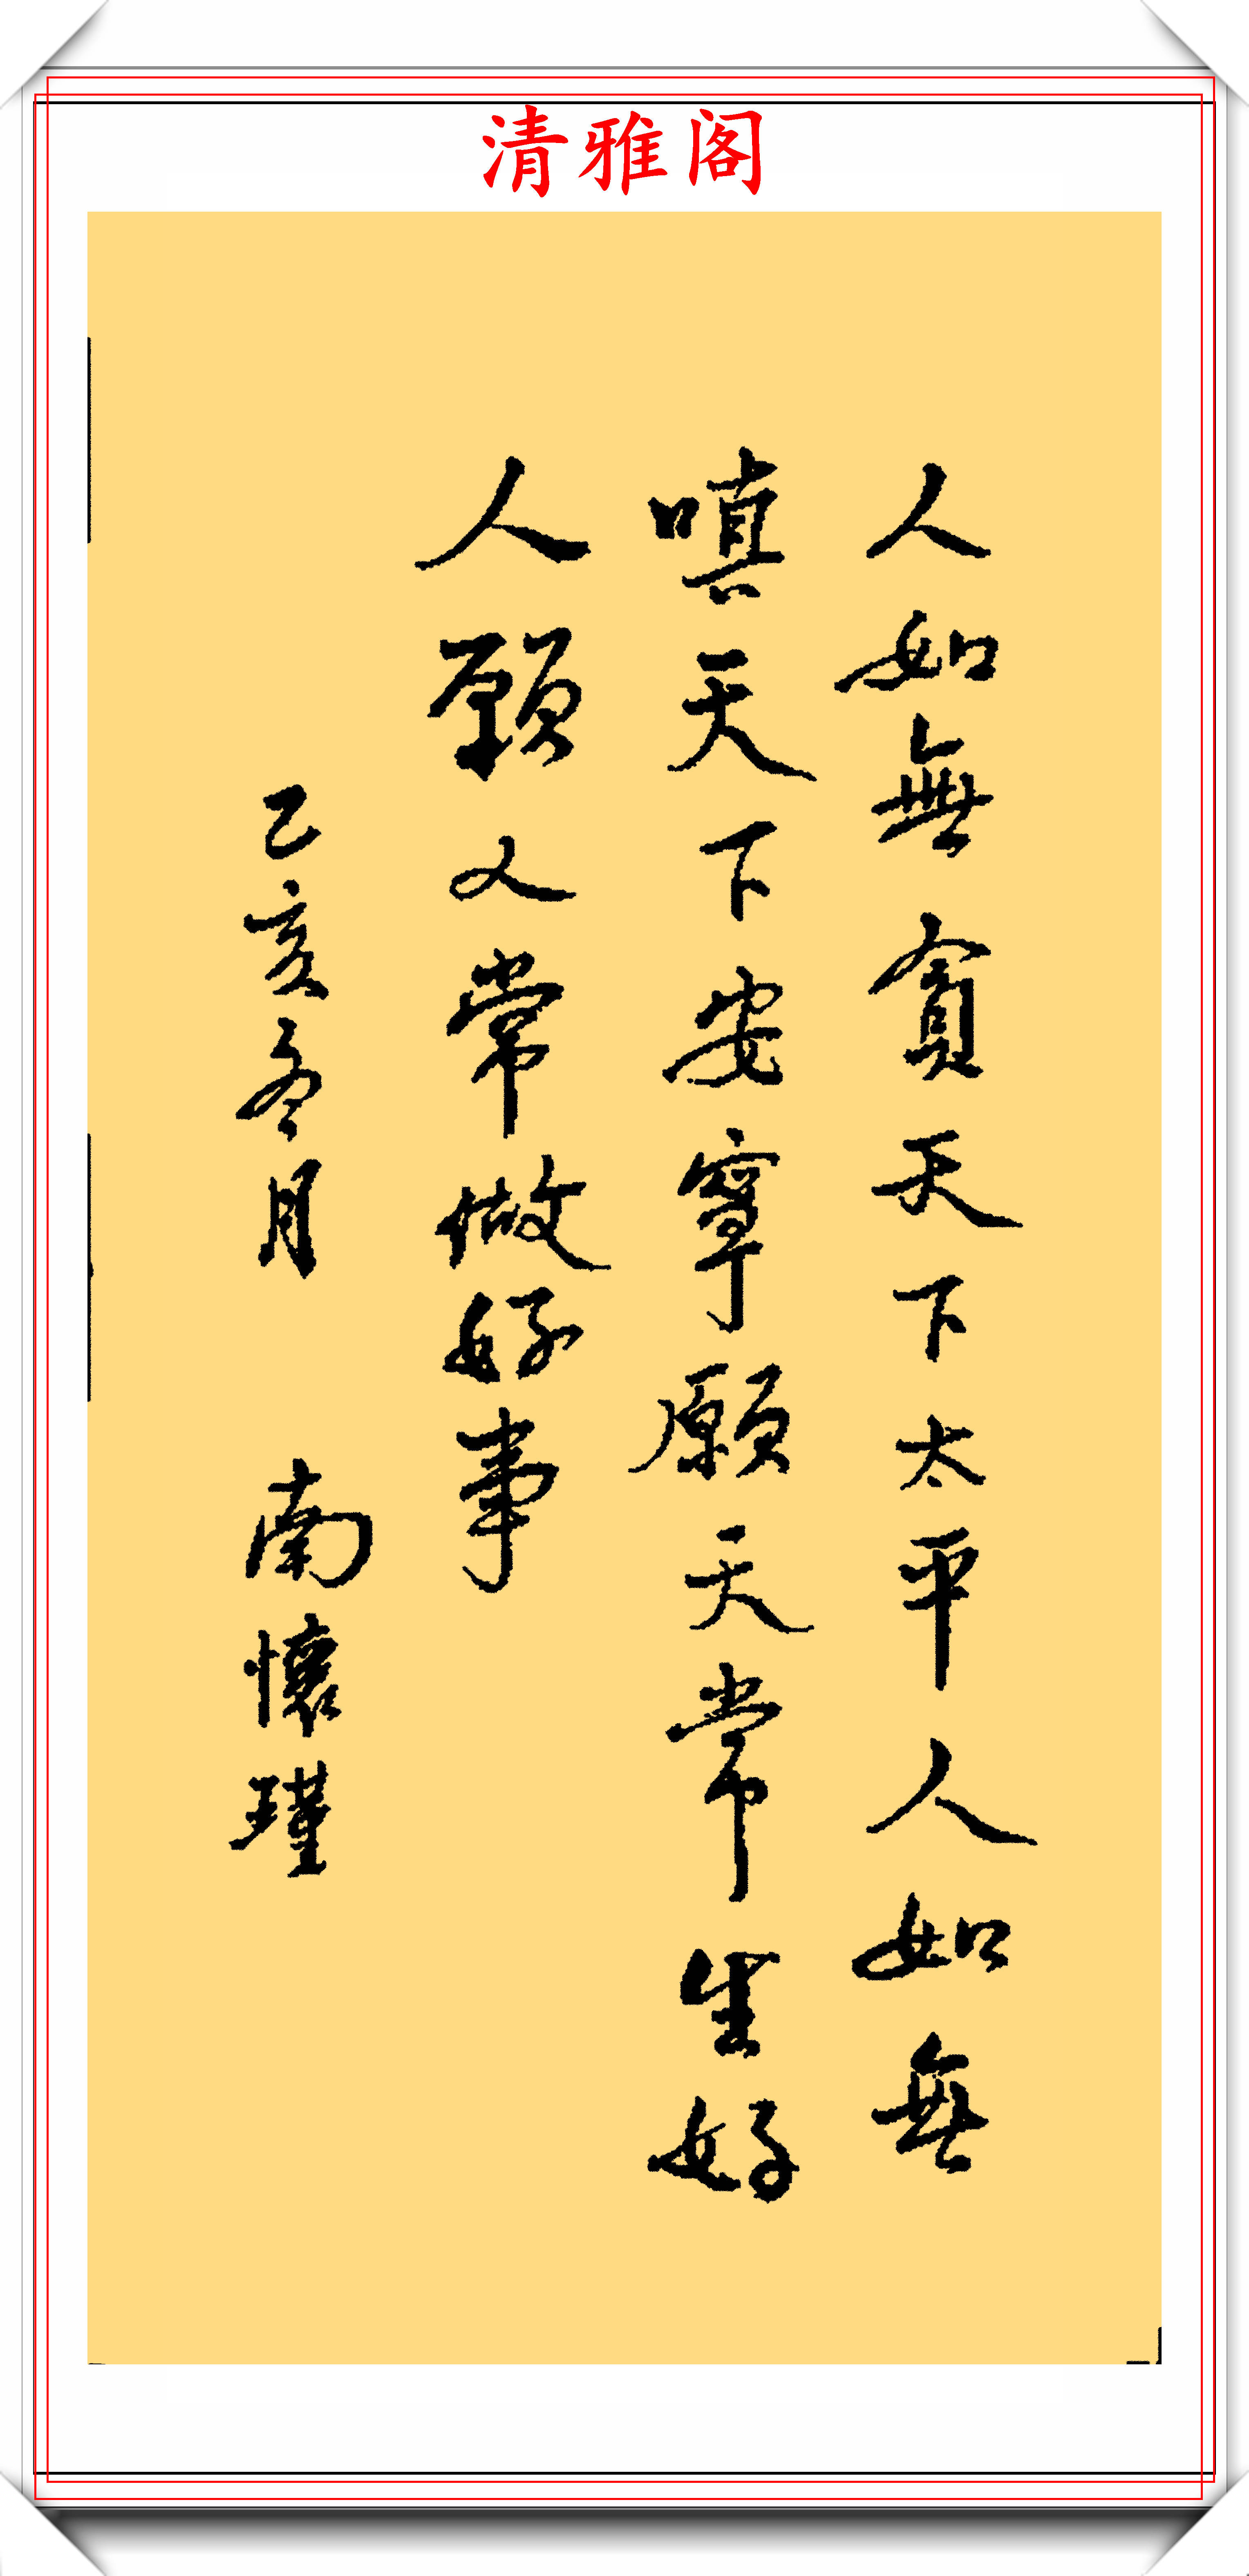 清雅阁
人如無貪天下太平人如無
嗔天下安寧願天常生好
人願人常做好事
乙亥冬月 南懷瑾